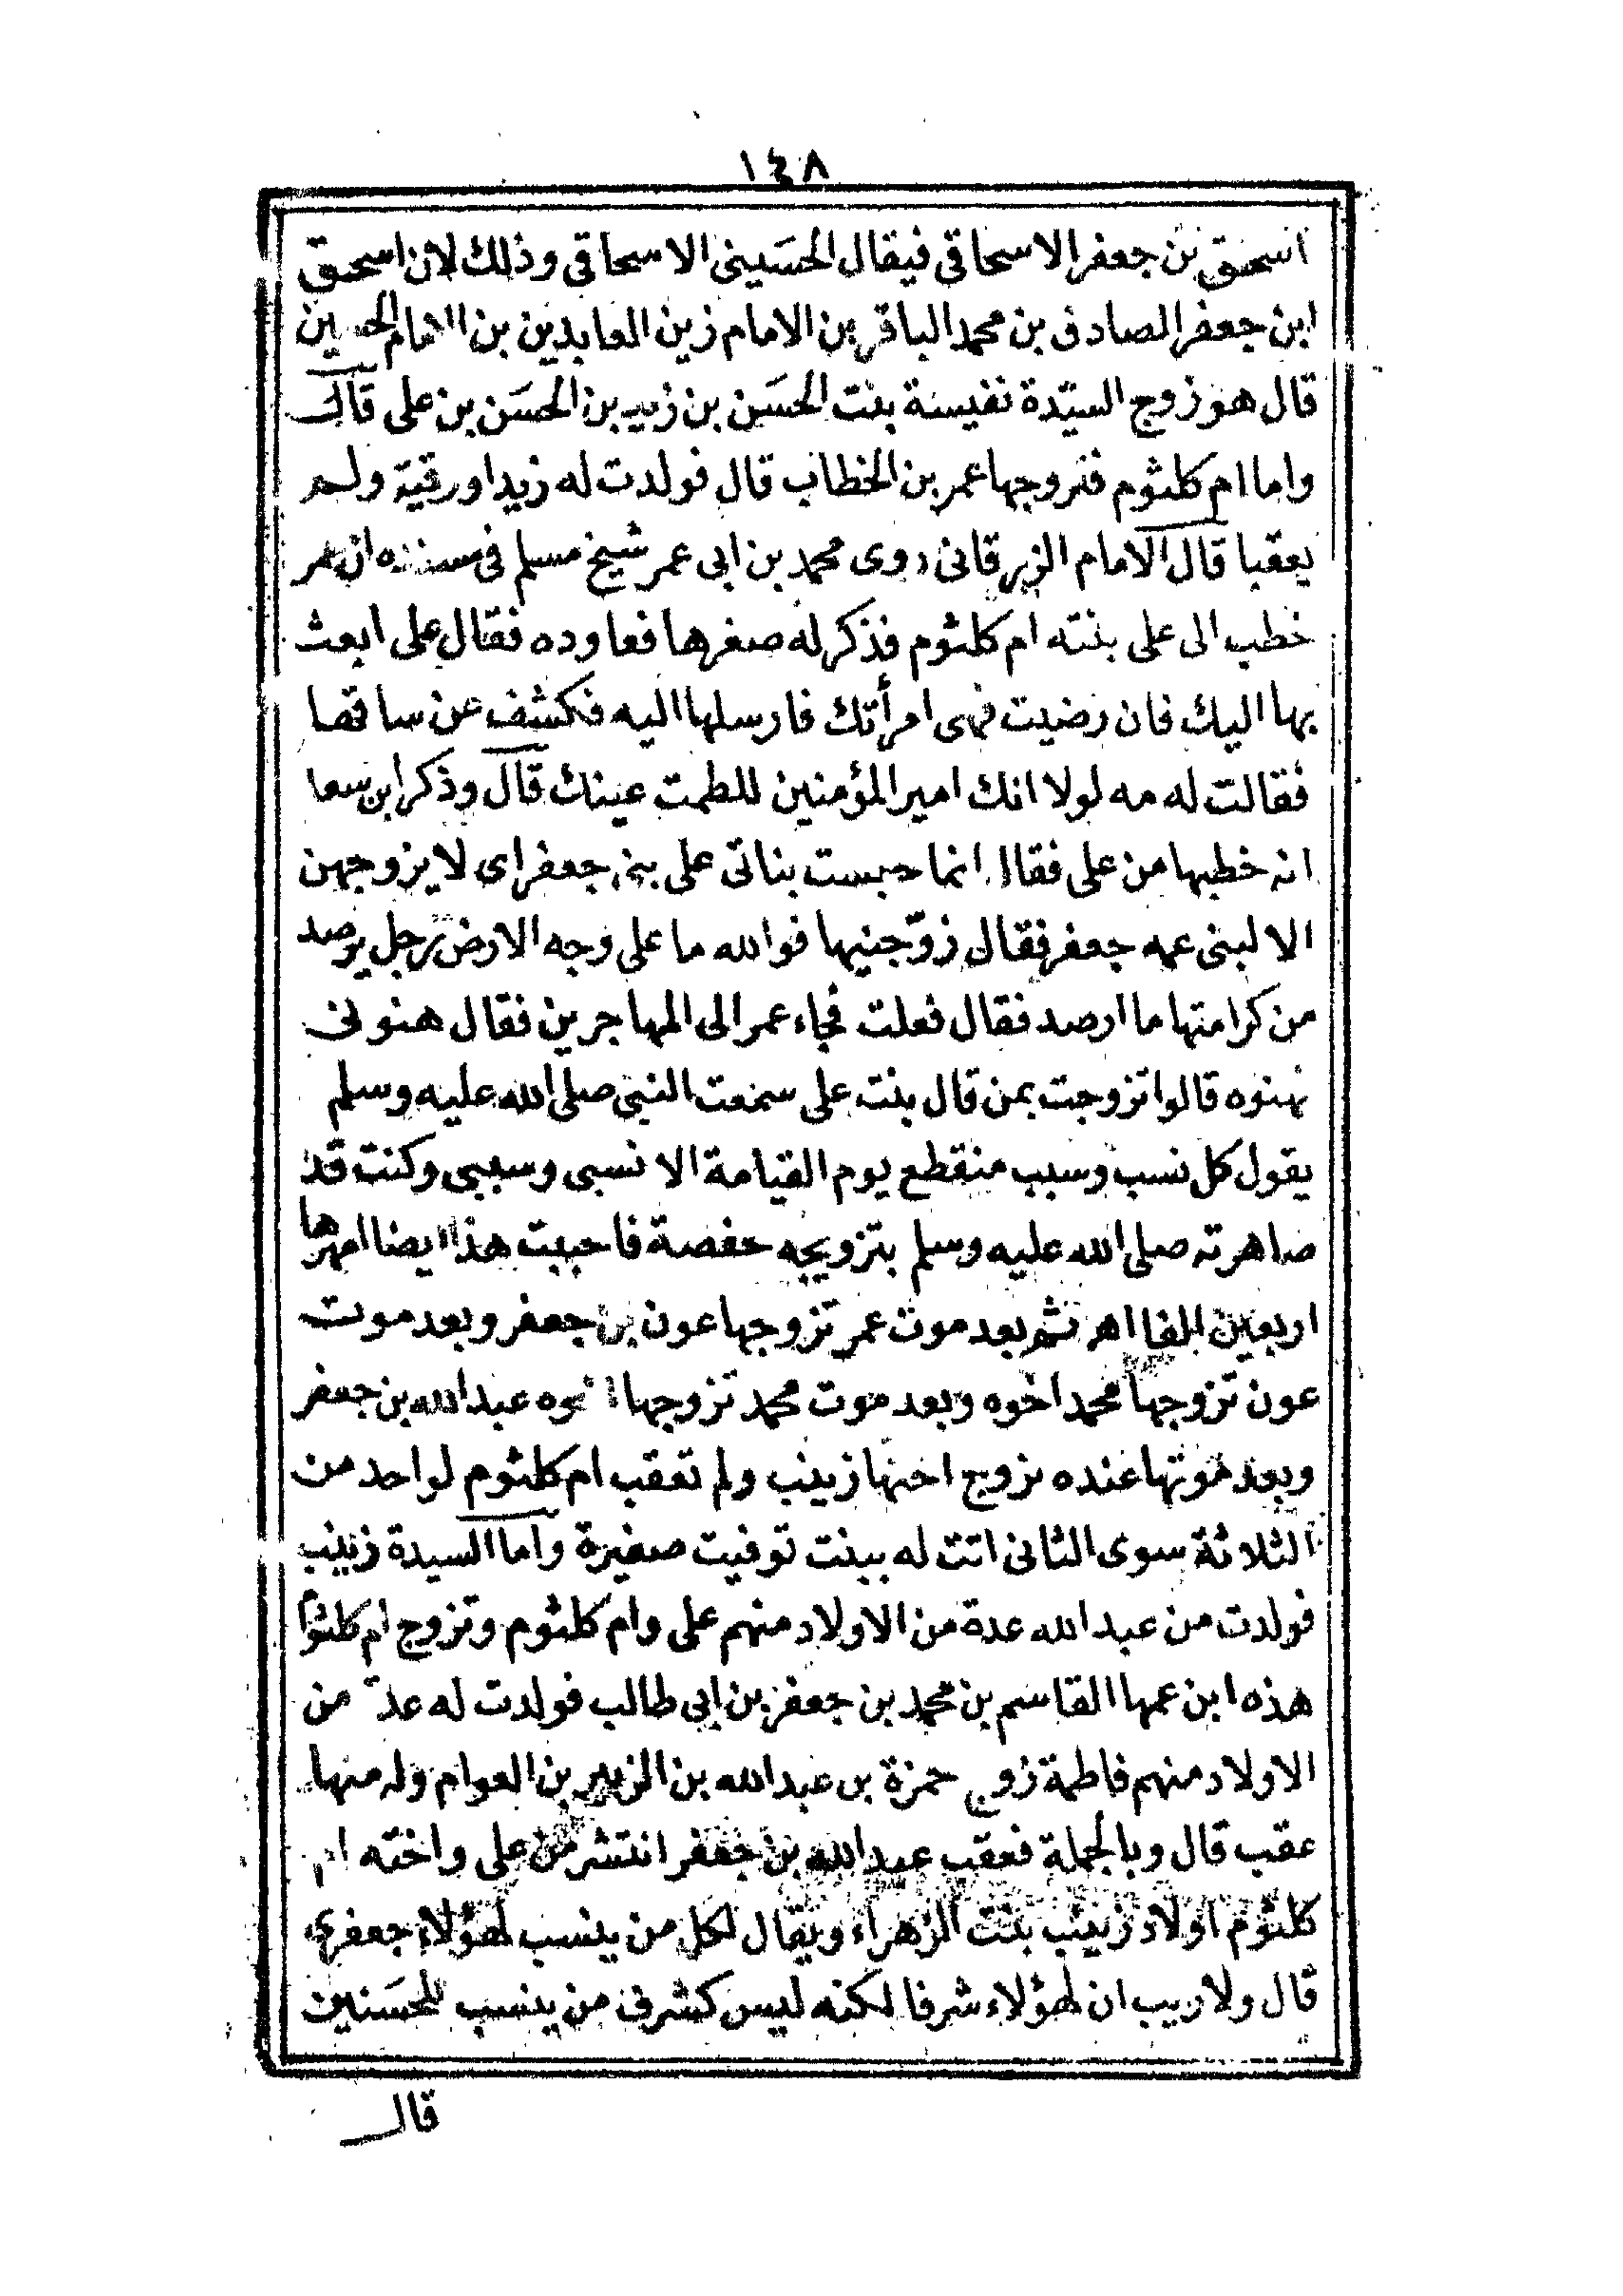 ١٤٨
اسحق بن جعفر الاسحاقى فيقال الحسَينى الاسحاقى وذلك لان اسحق
ابن جعفر الصادق بن محمد الباقر بن الامام زين العابدين بن الامام الحسين
قال هو زوج السيّدة نفيسة بنت الحسَن بن زيد بن الحسَن بن على قال
واما ام كلثوم فتزوجها عمر بن الخطاب قال فولدت له زيدا ورقية ولم
يعقبا قال الامام الزرقانى روى محمد بن ابى عمر شيخ مسلم فى مسنده ان عمر
خطب الى على بنته ام كلثوم فذكر له صغرها فعاوده فقال على ابعث
بها اليك فان رضيت فهى امرأتك فارسلها اليه فكشف عن ساقها
فقالت له مه لولا انك امير المؤمنين للطمت عينك قال وذكر ابن سعد
انه خطبها من على فقال انما حبست بناتى على بنى جعفر اى لا يزوجهن
الا لبنى عمه جعفر فقال زوّجنيها فوالله ما على وجه الارض رجل يرصد
من كرامتها ما ارصد فقال فعلت فجاء عمر الى المهاجرين فقال هنونى
فهنوه قالوا تزوجت بمن قال بنت على سمعت النبى صلى الله عليه وسلم
يقول كل نسب وسبب منقطع يوم القيامة الا نسبى وسببى وكنت قد
صاهرته صلى الله عليه وسلم بتزويجه حفصة فاحببت هذا ايضا امهرها
اربعين الفا اهر ثم بعد موت عمر تزوجها عون بن جعفر وبعد موت
عون تزوجها محمد اخوه وبعد موت محمد تزوجها اخوه عبد الله بن جعفر
وبعد موتها عنده تزوج اختها زينب ولم تعقب ام كلثوم لواحد من
الثلاثة سوى الثانى اتت له ببنت توفيت صغيرة واما السيدة زينب
فولدت من عبد الله عدة من الاولاد منهم على وام كلثوم وتزوج ام كلثوم
هذه ابن عمها القاسم بن محمد بن جعفر بن ابى طالب فولدت له عدة من
الاولاد منهم فاطمة زوج حمزة بن عبد الله بن الزبير بن العوام وله منها
عقب قال وبالجملة فعقب عبد الله بن جعفر انتشر من على واخته ام
كلثوم اولاد زينب بنت الزهراء ويقال لكل من ينسب لهؤلاء جعفرى
قال ولا ريب ان لهؤلاء شرفا لكنه ليس كشرف من ينسب للحسَنين
قال